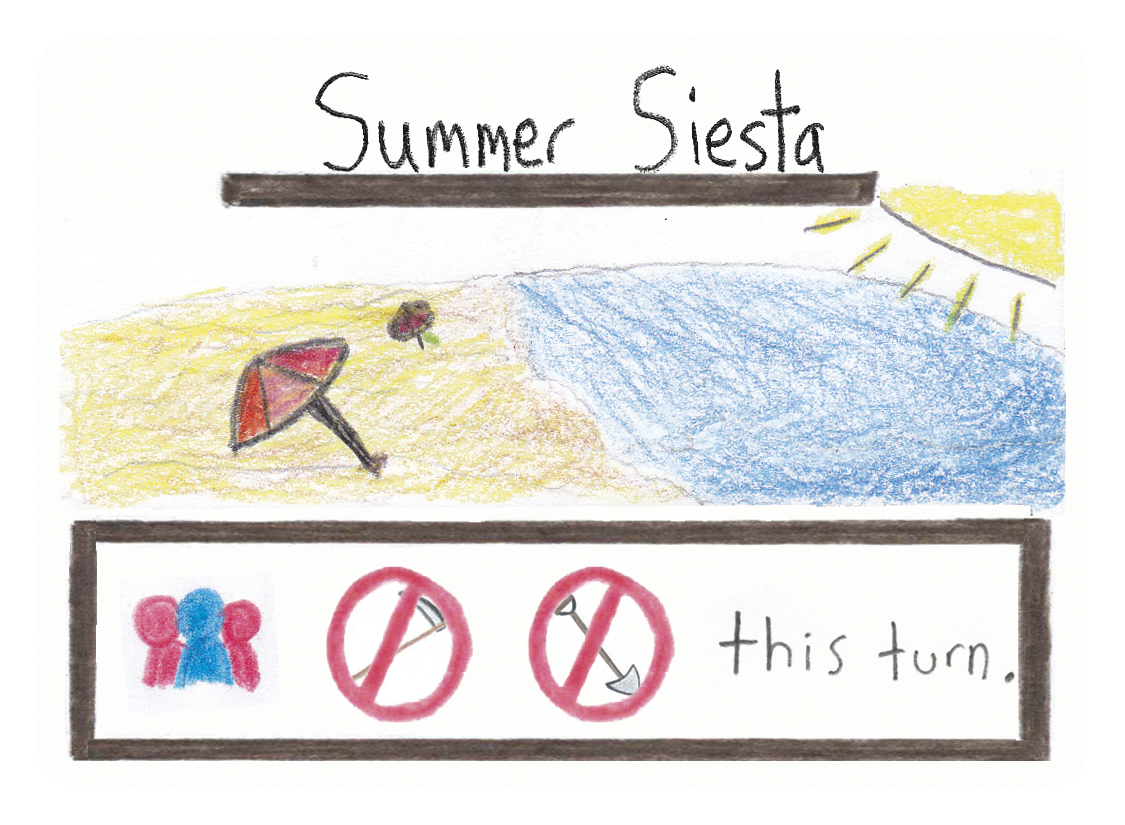 Summer Siesta
this turn.